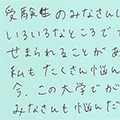 受験生のみなさんし
いろいろなところで
せまられることがあ
私もたくさん悩ん
今、この大学でが
みなさんも悩んだ